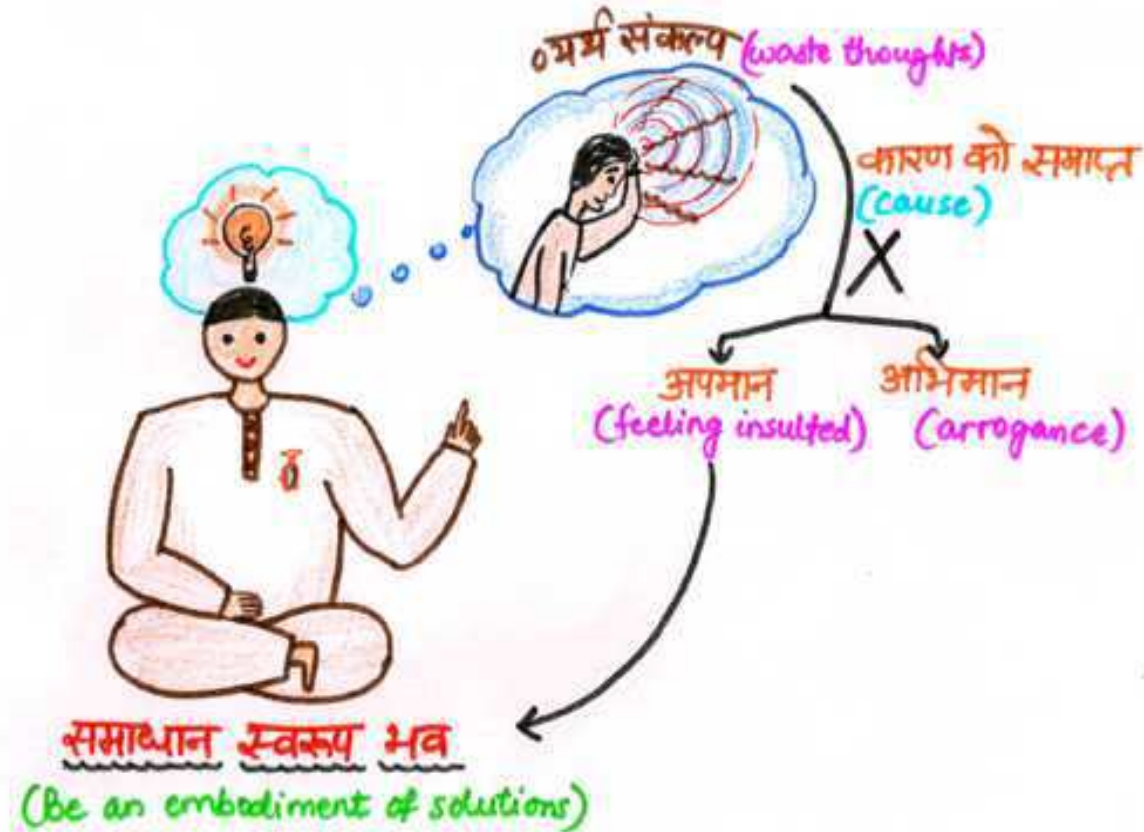 व्यर्थ संकल्प (waste thoughts)
कारण को समाप्त
(cause)
अपमान
(feeling insulted)
अभिमान
(arrogance)
समाधान स्वरूप भव
(Be an embodiment of solutions)